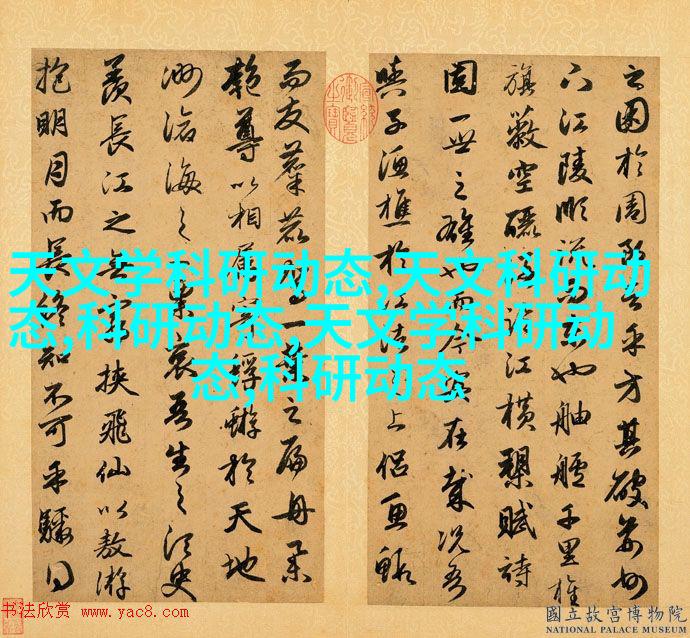 之困於周郎者乎方其破荊州
下江陵順流而東也舳艫千里旌
旗蔽空釃酒臨江橫槊賦詩
固一世之雄也而今安在哉況吾
與子漁樵於江渚上侶魚蝦
而友麋鹿駕一葉之扁舟舉
匏尊以相屬寄蜉蝣於天地
渺滄海之一粟哀吾生之須臾
羨長江之無窮挾飛仙以遨游
抱明月而長終知不可乎驟得
天文学科研动态,天文科研动
态,科研动态,天文学科研动
态,科研动态
书法欣赏 www.yac8.com
國立故宮博物院
NATIONAL PALACE MUSEUM